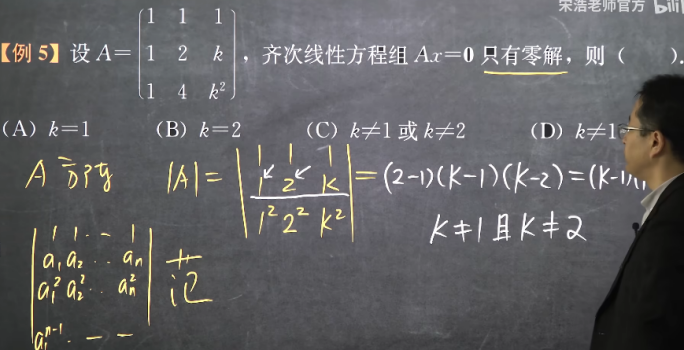 宋浩老师官方 bili
【例 5】设 A=
1 1 1
1 2 k
1 4 k²
, 齐次线性方程组 Ax=0 只有零解，则（ ）.
(A) k=1 (B) k=2 (C) k≠1 或 k≠2 (D) k≠1
A 方阵 |A|=
1 1 1
1 2 k
1² 2² k²
=(2-1)(k-1)(k-2)=(k-1)(
k≠1且k≠2
1 1 ... 1
a₁ a₂ ... aₙ
a₁² a₂² ... aₙ²
a₁ⁿ⁻¹ . - -
记